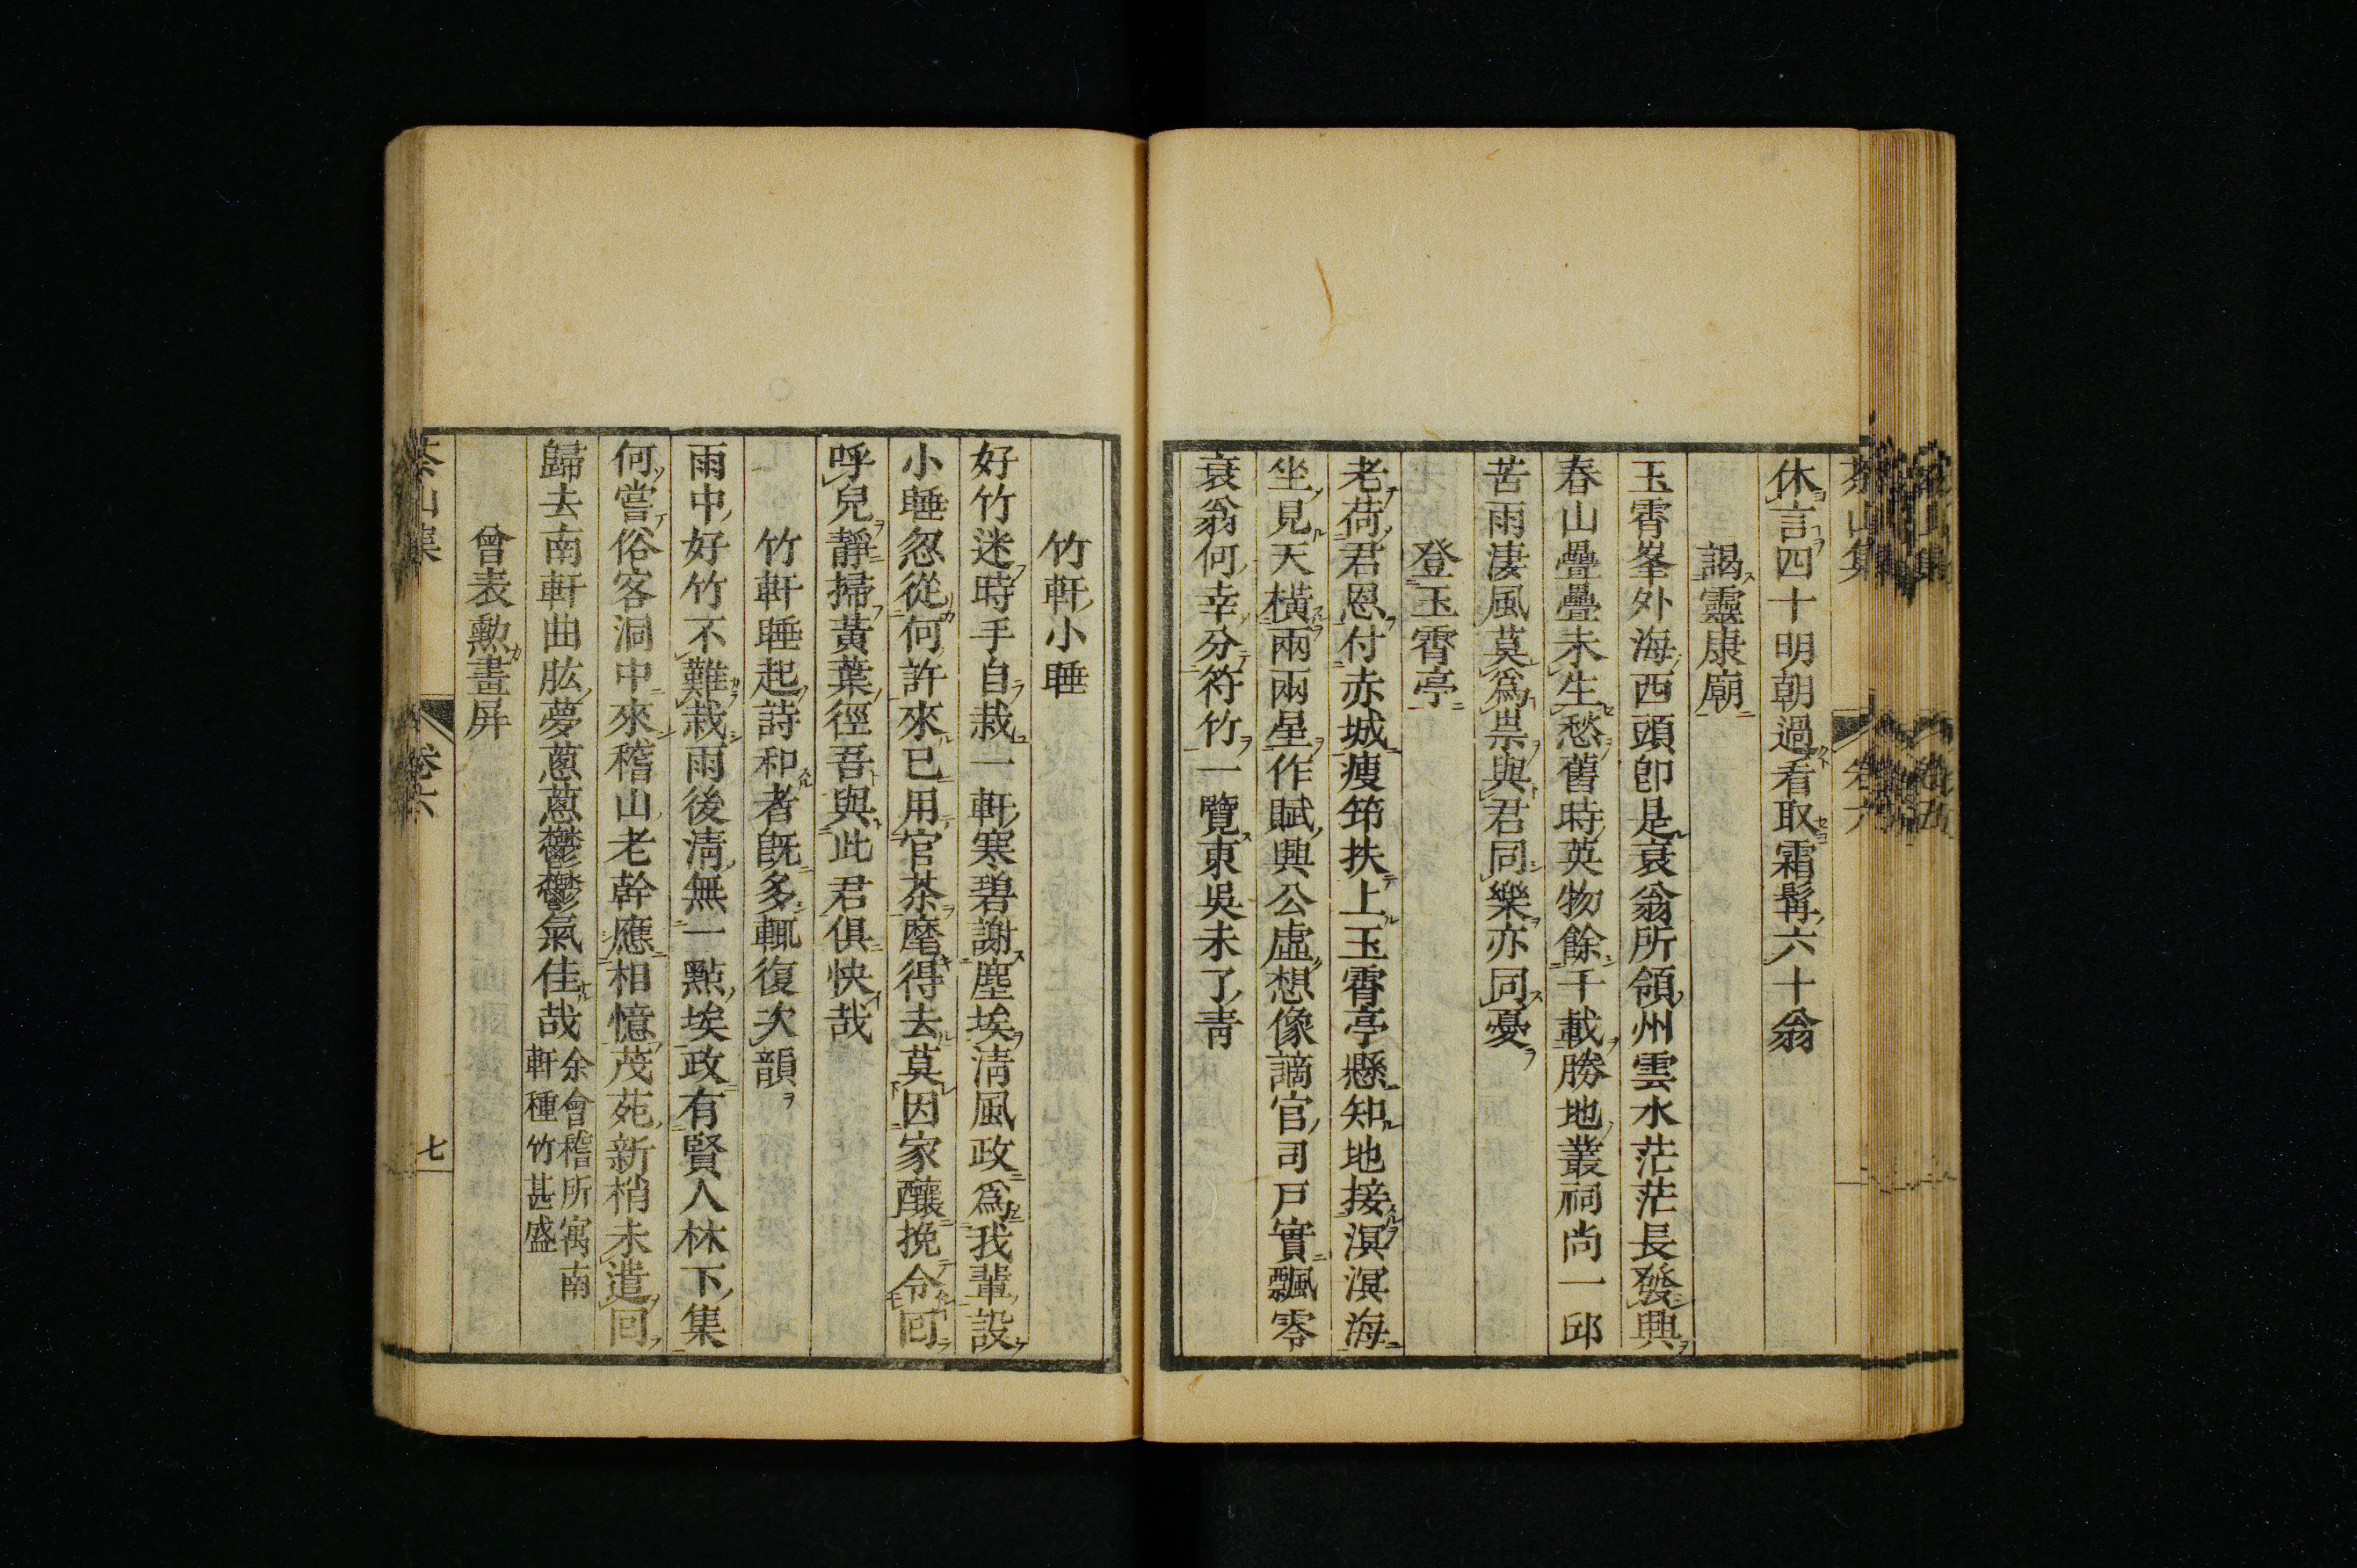 茶山集 卷六
休言四十明朝過看取霜髯六十翁
謁靈康廟
玉霄峯外海西頭卽是衰翁所領州雲水茫茫長發興
春山疊疊未生愁舊時英物餘千載勝地叢祠尚一邱
苦雨淒風莫爲祟與君同樂亦同憂
登玉霄亭
老荷君恩付赤城痩笻扶上玉霄亭懸知地接溟溟海
坐見天橫兩兩星作賦興公虛想像謫官司戸實飄零
衰翁何幸分符竹一覽東吳未了靑
竹軒小睡
好竹迷時手自栽一軒寒碧謝塵埃淸風政爲我輩設
小睡忽從何許來已用官茶麾得去莫因家釀挽令回
呼兒靜掃黃葉徑吾與此君俱快哉
竹軒睡起詩和者旣多輒復次韻
雨中好竹不難栽雨後淸無一點埃政有賢人林下集
何嘗俗客洞中來稽山老幹應相憶茂苑新梢未遣回
歸去南軒曲肱夢蔥蔥鬱鬱氣佳哉 余會稽所寓南
軒種竹甚盛
曾表勲畫屏
茶山集 卷六 七